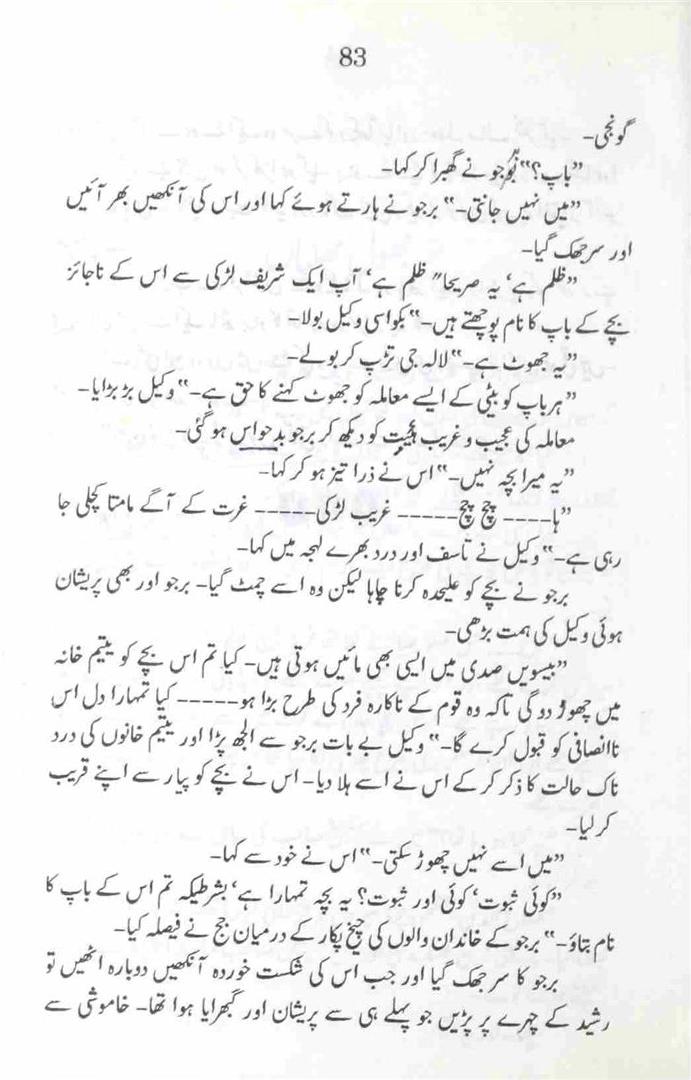 83
گونجی۔
”باپ؟“ برجو نے گھبرا کر کہا۔
”میں نہیں جانتی۔“ برجو نے ہارتے ہوئے کہا اور اس کی آنکھیں بھر آئیں
اور سر جھک گیا۔
”ظلم ہے‘ یہ صریحا″ ظلم ہے‘ آپ ایک شریف لڑکی سے اس کے ناجائز
بچے کے باپ کا نام پوچھتے ہیں۔“ بکواسی وکیل بولا۔
”یہ جھوٹ ہے۔“ لالہ جی تڑپ کر بولے۔
”ہر باپ کو بیٹی کے ایسے معاملہ کو جھوٹ کہنے کا حق ہے۔“ وکیل بڑبڑایا۔
معاملہ کی عجیب و غریب ہیئت کو دیکھ کر برجو بدحواس ہو گئی۔
”یہ میرا بچہ نہیں۔“ اس نے ذرا تیز ہو کر کہا۔
”ہا۔۔۔۔ چچ چچ۔۔۔۔۔۔ غریب لڑکی۔۔۔۔۔ غرت کے آگے مامتا کچلی جا
رہی ہے۔“ وکیل نے تاسف اور درد بھرے لہجہ میں کہا۔
برجو نے بچے کو علیحدہ کرنا چاہا لیکن وہ اسے چمٹ گیا۔ برجو اور بھی پریشان
ہوئی وکیل کی ہمت بڑھی۔
”بیسویں صدی میں ایسی بھی مائیں ہوتی ہیں۔ کیا تم اس بچے کو یتیم خانہ
میں چھوڑ دو گی تاکہ وہ قوم کے ناکارہ فرد کی طرح بڑا ہو۔۔۔۔۔ کیا تمہارا دل اس
ناانصافی کو قبول کرے گا۔“ وکیل بے بات برجو سے الجھ پڑا اور یتیم خانوں کی درد
ناک حالت کا ذکر کر کے اس نے اسے ہلا دیا۔ اس نے بچے کو پیار سے اپنے قریب
کر لیا۔
”میں اسے نہیں چھوڑ سکتی۔“ اس نے خود سے کہا۔
”کوئی ثبوت‘ کوئی اور ثبوت؟ یہ بچہ تمہارا ہے‘ بشرطیکہ تم اس کے باپ کا
نام بتاؤ۔“ برجو کے خاندان والوں کی چیخ پکار کے درمیان جج نے فیصلہ کیا۔
برجو کا سر جھک گیا اور جب اس کی شکست خوردہ آنکھیں دوبارہ اٹھیں تو
رشید کے چہرے پر پڑیں جو پہلے ہی سے پریشان اور گھبرایا ہوا تھا۔ خاموشی سے